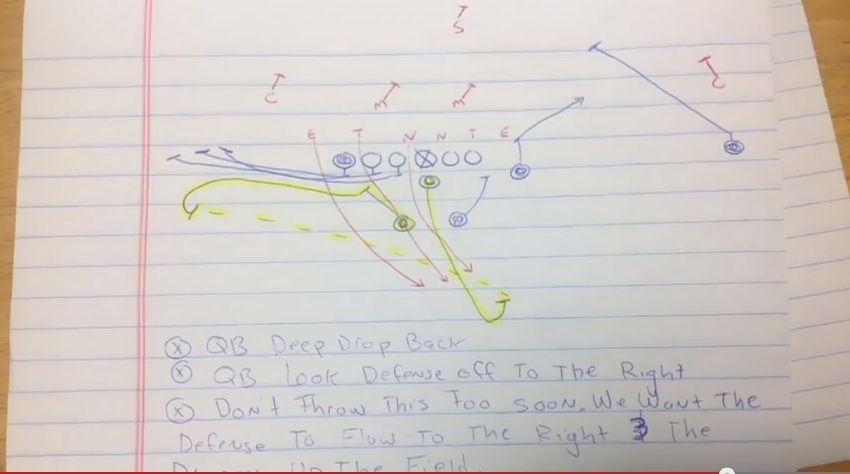 S
C
C
M
M
E T N N T E
X
ⓧ QB Deep Drop Back
ⓧ QB Look Defense off To The Right
ⓧ Don't Throw This Too Soon. We Want The
Defense To Flow To The Right The
Up The Field.